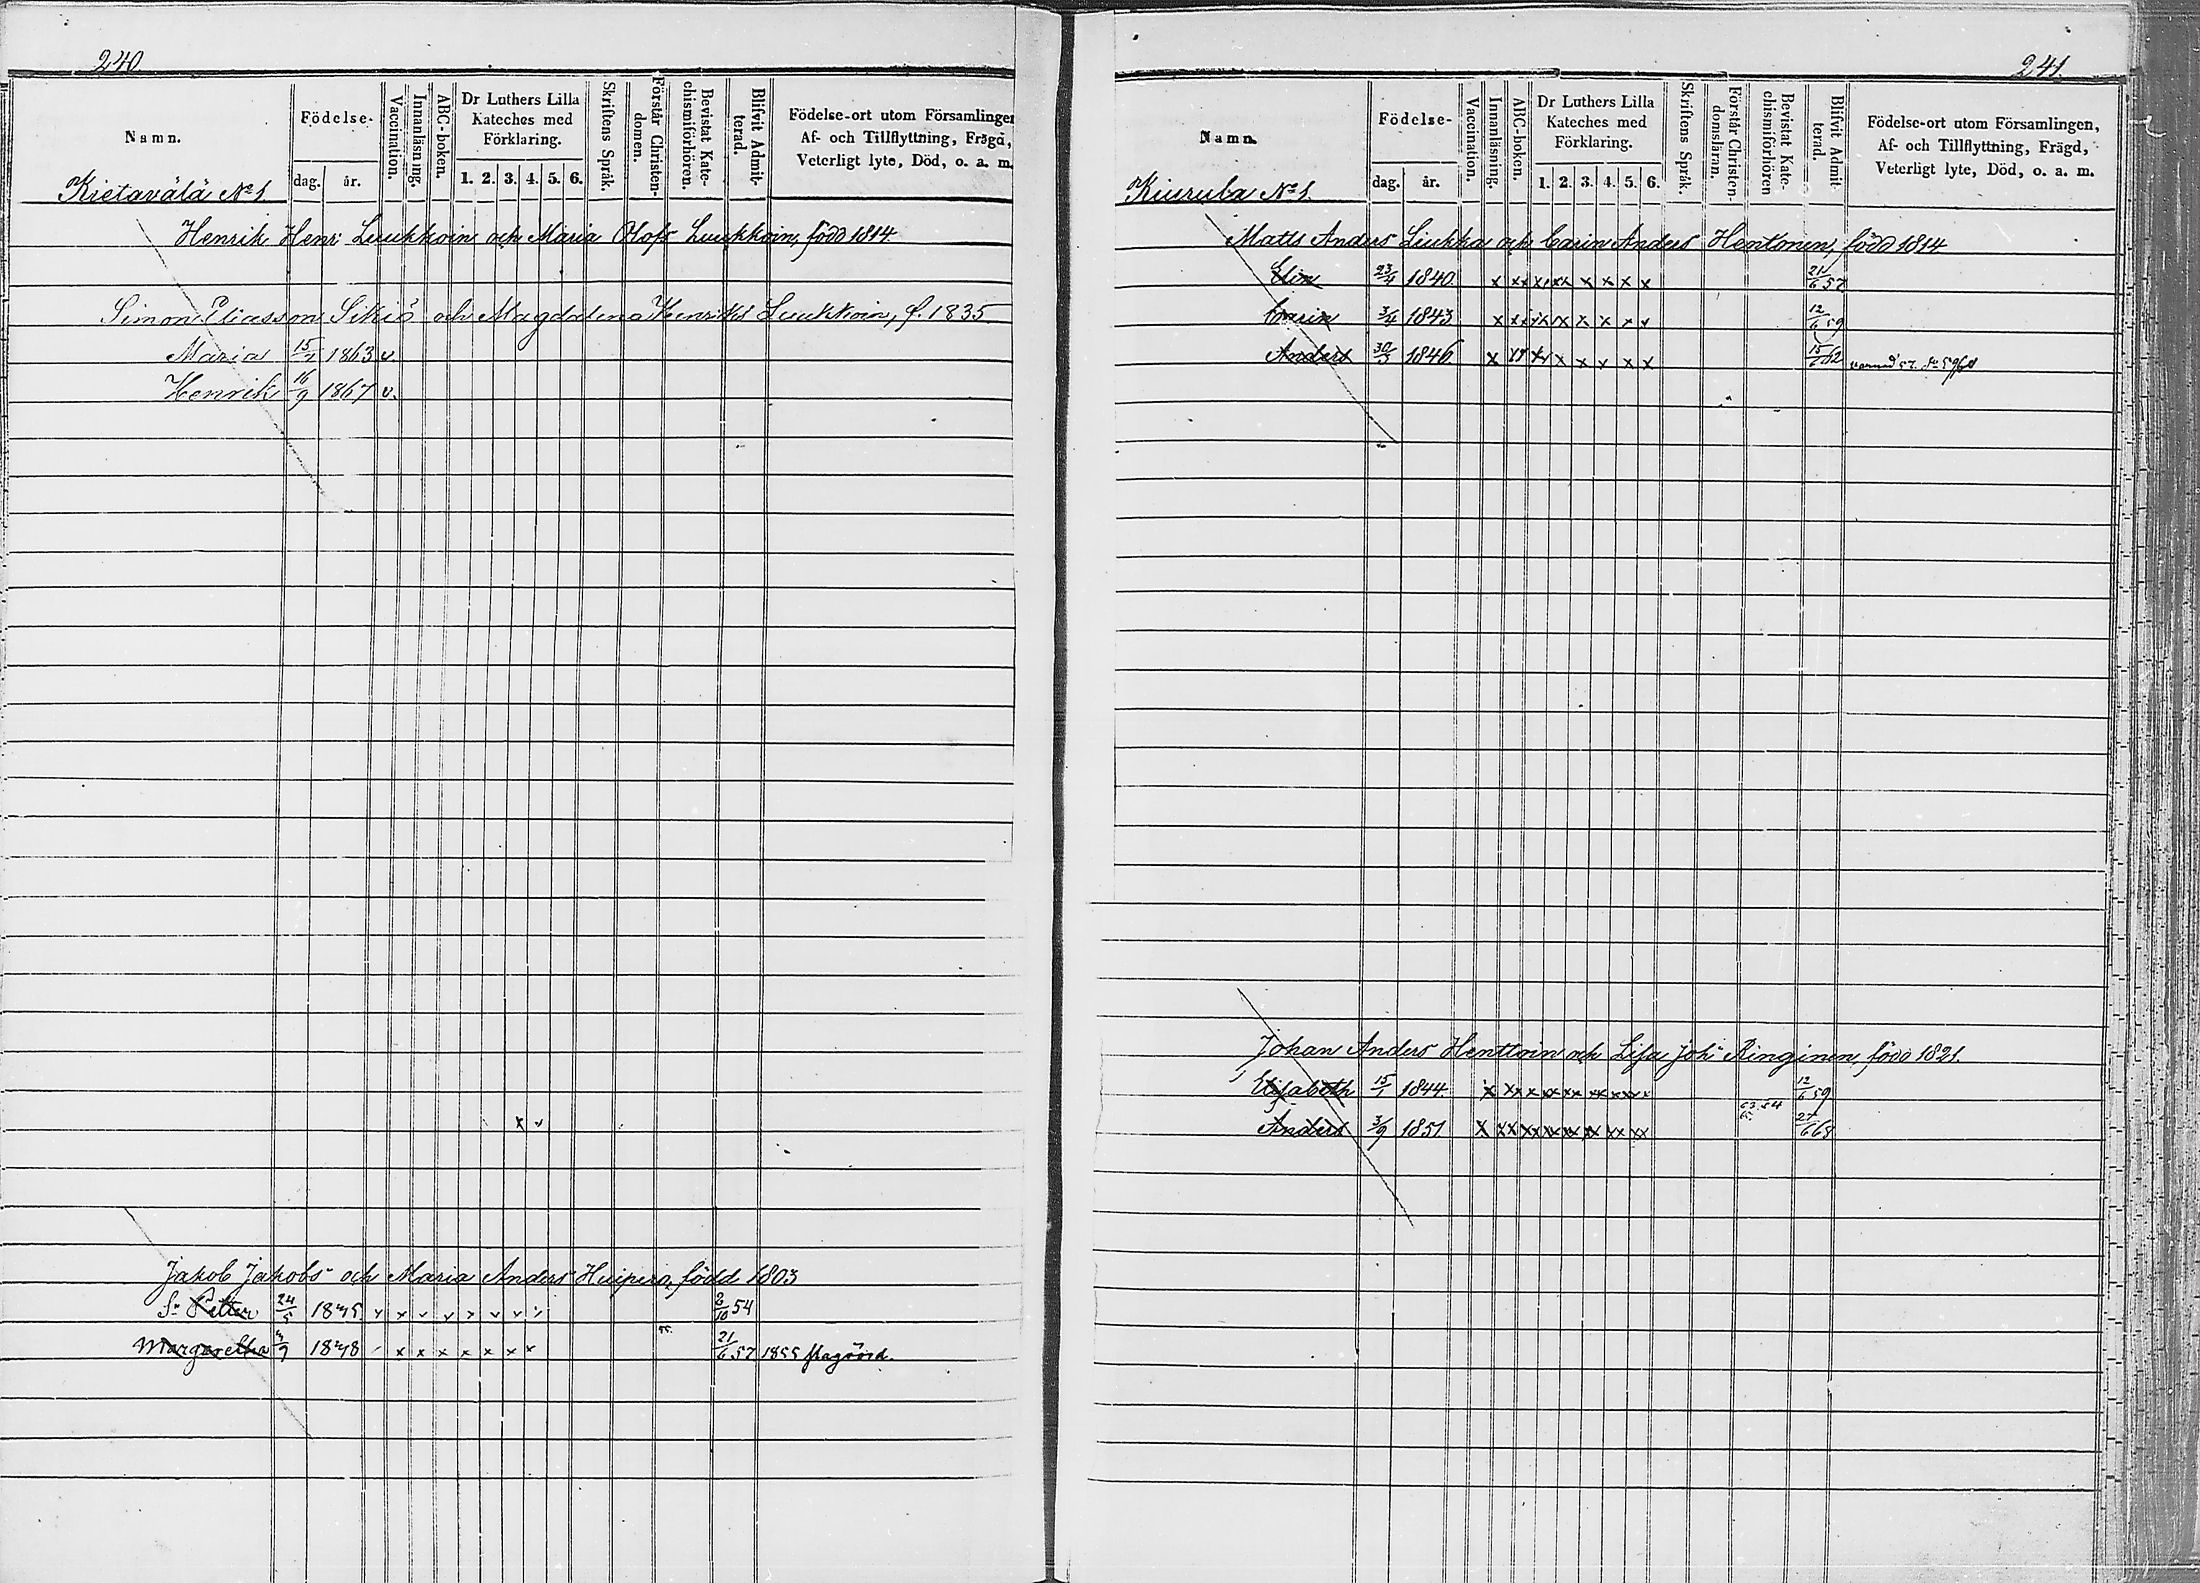 240
Namn.
Födelse-
dag. år.
Vaccination.
Innanläsning.
ABC-boken.
Dr Luthers Lilla
Kateches med
Förklaring.
1. 2. 3. 4. 5. 6.
Skriftens Språk.
Förstår Christen-
domen.
Bevistat Kate-
chismiförhören.
Blifvit Admit-
terad.
Födelse-ort utom Församlingen
Af- och Tillflyttning, Frägd,
Veterligt lyte, Död, o. a. m.
Kietavälä No 1
Henrik Henr. Luukkoin och Maria Olofs Luukkoin, född 1814.
Simon Eliasson Sikiö och Magdalena Henriks Luukkoin, f. 1835
Maria 1863 v.
Henrik 16/9 1867 v.
x v
Jakob Jakobs och Maria Anders Huipero, född 1803
Petter 24/5 54
Margaretha 21/6 57 1855
241.
Namn.
Födelse-
dag. år.
Vaccination.
Innanläsning.
ABC-boken.
Dr Luthers Lilla
Kateches med
Förklaring.
1. 2. 3. 4. 5. 6.
Skriftens Språk.
Förstår Christen-
domsläran.
Bevistat Kate-
chismiförhören
Blifvit Admit-
terad.
Födelse-ort utom Församlingen,
Af- och Tillflyttning, Frägd,
Veterligt lyte, Död, o. a. m.
Kiurula No 1.
Matts Anders Liukka och Carin Anders Henttonen, född 1814
Elin 23/4 1840 x xx xx xx x x x x 21/6 57
Carin 3/4 1843 x xx xx x x x x x 12/6 59
Anders 1846 x xx xx x x x x x 15/6 62
Johan Anders Henttoin och Lisa Joh. Ringinen, född 1821.
Elisabeth 15/1 1844. x xx x xx xx xx xx xx 12/6 59
Anders 3/9 1851 x xx xx xx xx xx xx xx 68